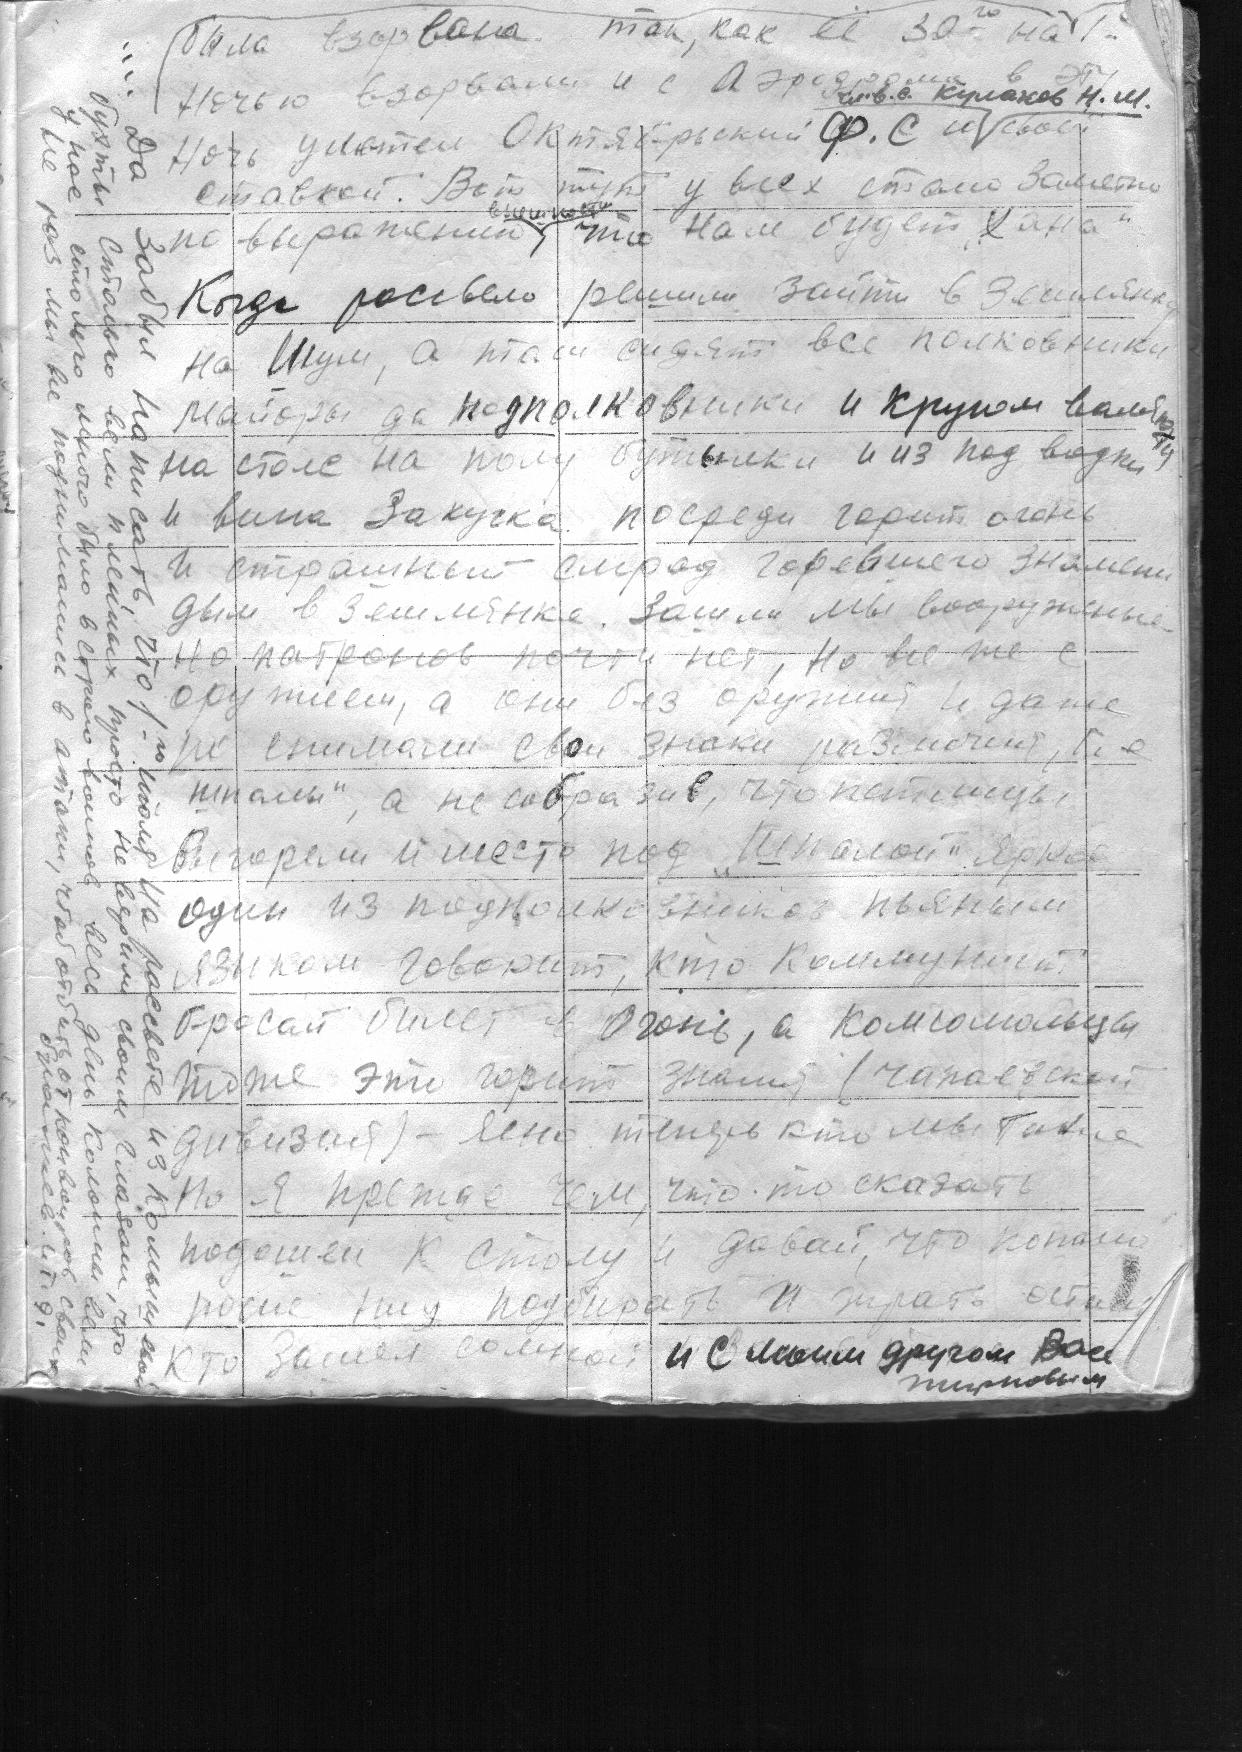 была взорвана так, как её 30го на 1го
Ночью взорвали и с Аэродрома в эту
чл. в.с. Кулаков Н. М.
Ночь улетел Октябрьский Ф. С и своей
ставкой. Вот тут у всех стало заметно
внешности
по выражению что нам будет „Хана"
Когда росвело решили зайти в землянку
на Шум, а там сидят все полковники
Майоры да подполковники и кругом валяются
на столе на полу бутылки и из под водки
и вина Закуска посреди горит огонь
и страшный смрад горевшего знамени
дым в землянке. Зашли мы вооруженые
Но патронов почти нет, но все же с
оружием, а они без оружия и даже
по снимали свои знаки различия, т.е
„шпалы", а не сабразив, что петлицы
выгорели и место под „Шпалой" яркое
один из подполковников пьяным
языком говорит, кто Коммунист
бросай билет в Огонь, а Комсомольцы
тоже это горит знамя (Чапаевской
дивизая) – ясно теперь кто мы такие
Но я прежде чем, что-то сказать
подошел к столу и давай, что попало
роше подбирать и жрать
Кто зашел сомной и с моим другом Вас
тирновым
... Да забыл написать, что 1го июля на рассвете из Комышовой
бухты столько вели пленных просто не верили своим глазам, что
у нас столько много было в строю воинов весь день колонны вели
уже раз мы все поднимались в атаки, чтоб отбить от конвоиров своих